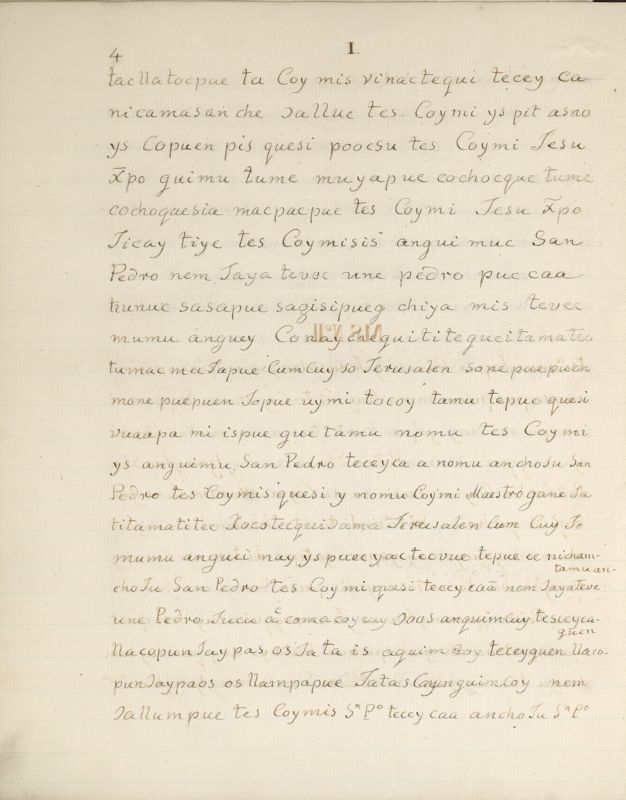 4
I
tacllatocpue ta Coy mis vinactequi tecey ca
nicamasanche Jalluc tes Coymi ys pit asno
ys Copuen pis quesi poocsu tes Coymi Jesu
Xpo guimu tume muyapue cochocque tume
cochoquesia macpacpue tes Coymi Jesu Xpo
Jicay tiye tes Coymisis angui muc San
Pedro nem Jaya tevec une pedro puc caa
hunuc sasapue sagisipueg chiya mis tevec
mumu anguey Conaychequititegueitamatec
tumac meu Japue CumCuy so Jerusalen sone puepuen
mone puepuen Jopue uymi tocoy tamu tepue quesi
vuaapa mi ispue gue tamu nomu tes Coymi
ys anguimu San Pedro teceyca a nomu anchoJu San
Pedro tes Coymis quesi y nomu Coymi Maestro gane Ja
titamatitec Xocotecqui Jama Jerusalen Cum Cuy Jo
mumu anguei nay ys puec yactecvue tepue ce nicham-
tamuan-
choJu San Pedro tes Coymi quesi tecey caa nem Jayateve
une Pedro Jucu a comacoy Joos anquimCuy tesceyca-
guen
llacopunJaypas os Jata is aquim Coy teceyguen llaco-
punJaypaos os llampapue Jatas Cayunguim Coy nem
Jallumpue tes Coymis Sn Po tecey caa ancho Ju Sn Po